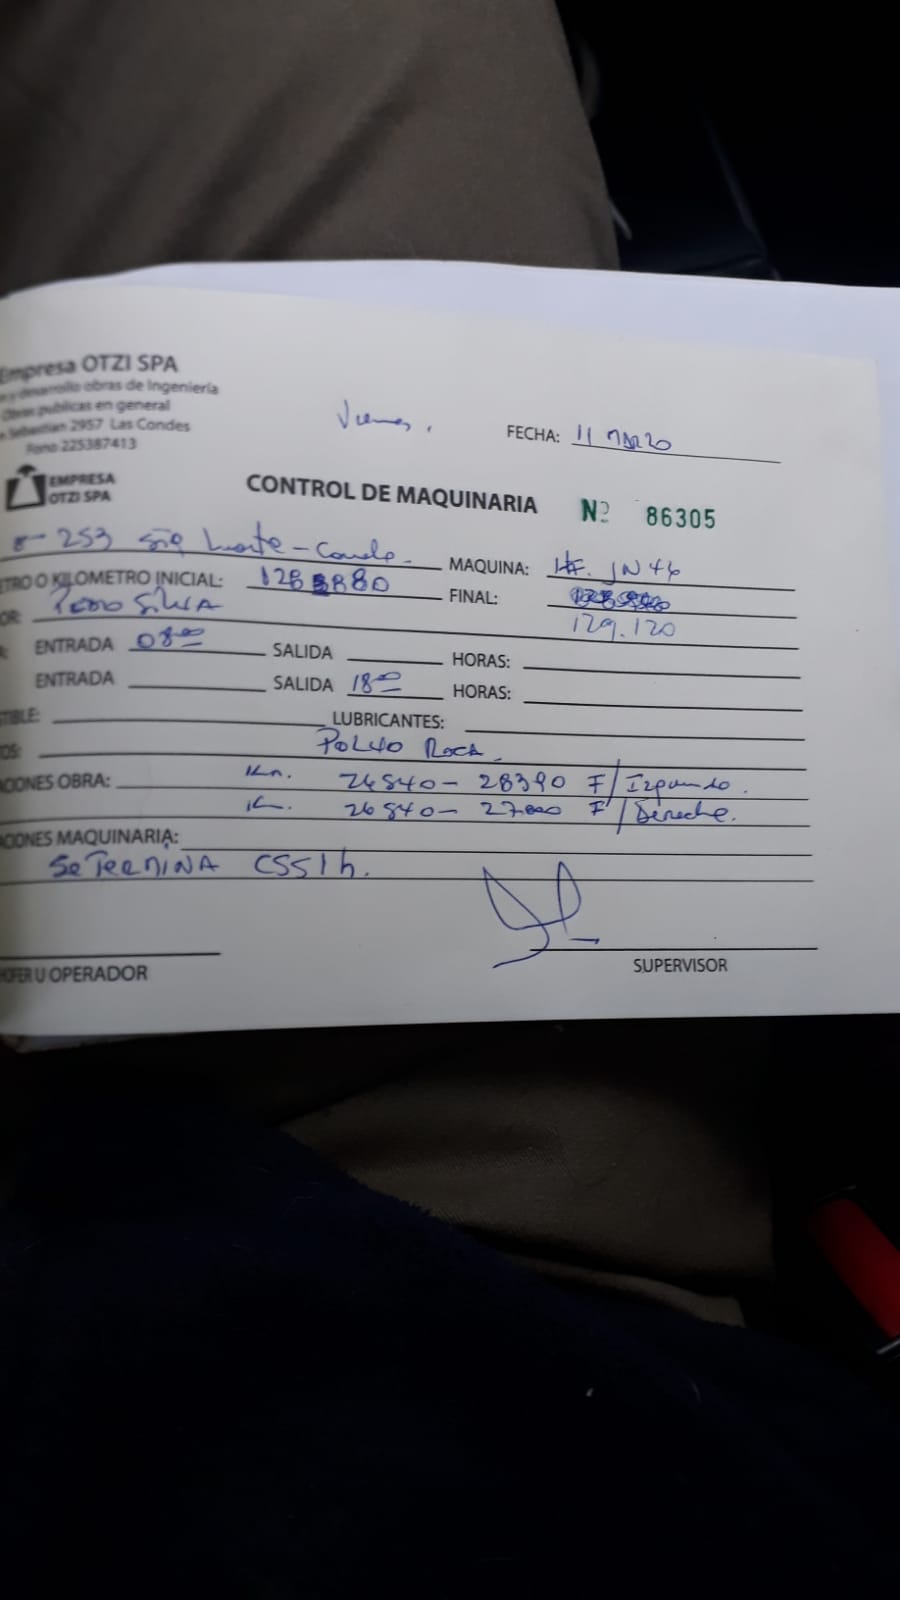 Empresa OTZI SPA
y desarrollo obras de Ingeniería
Obras publicas en general
Sebastian 2957 Las Condes
Fono 225387413
Viernes.
FECHA: 11 MARZO
EMPRESA
OTZI SPA
CONTROL DE MAQUINARIA Nº 86305
253
MAQUINA: JN 44
ETRO O KILOMETRO INICIAL: 128880
FINAL:
129.120
OR: Pedro Silva
ENTRADA 08:00 SALIDA HORAS:
ENTRADA SALIDA 18:00 HORAS:
STIBLE: LUBRICANTES:
OS: POLVO ROCA.
ACIONES OBRA: Km. 26840- 28390 F/Izquierdo.
K. 26840- 27000 F/Derecha.
ACIONES MAQUINARIA:
Se TERMINA CSS1h.
HOFER U OPERADOR
SUPERVISOR